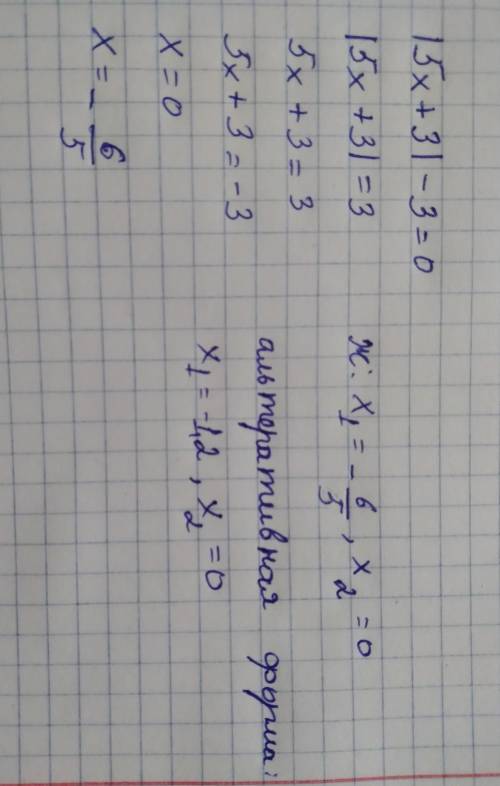 |5x + 3| - 3 = 0
|5x + 3| = 3
5x + 3 = 3
5x + 3 = -3
x = 0
x = - 6/5
Ж: x₁ = - 6/5 , x₂ = 0
альтеративная форма:
x₁ = -1,2 , x₂ = 0